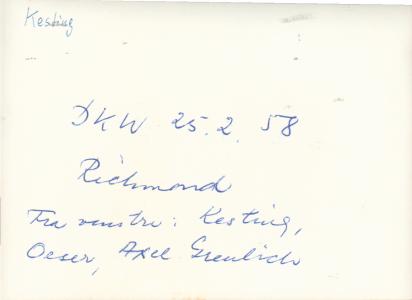 Kesting
DKW 25.2.58
Richmond
Fra venstre: Kesting,
Oeser, Axel Greulich